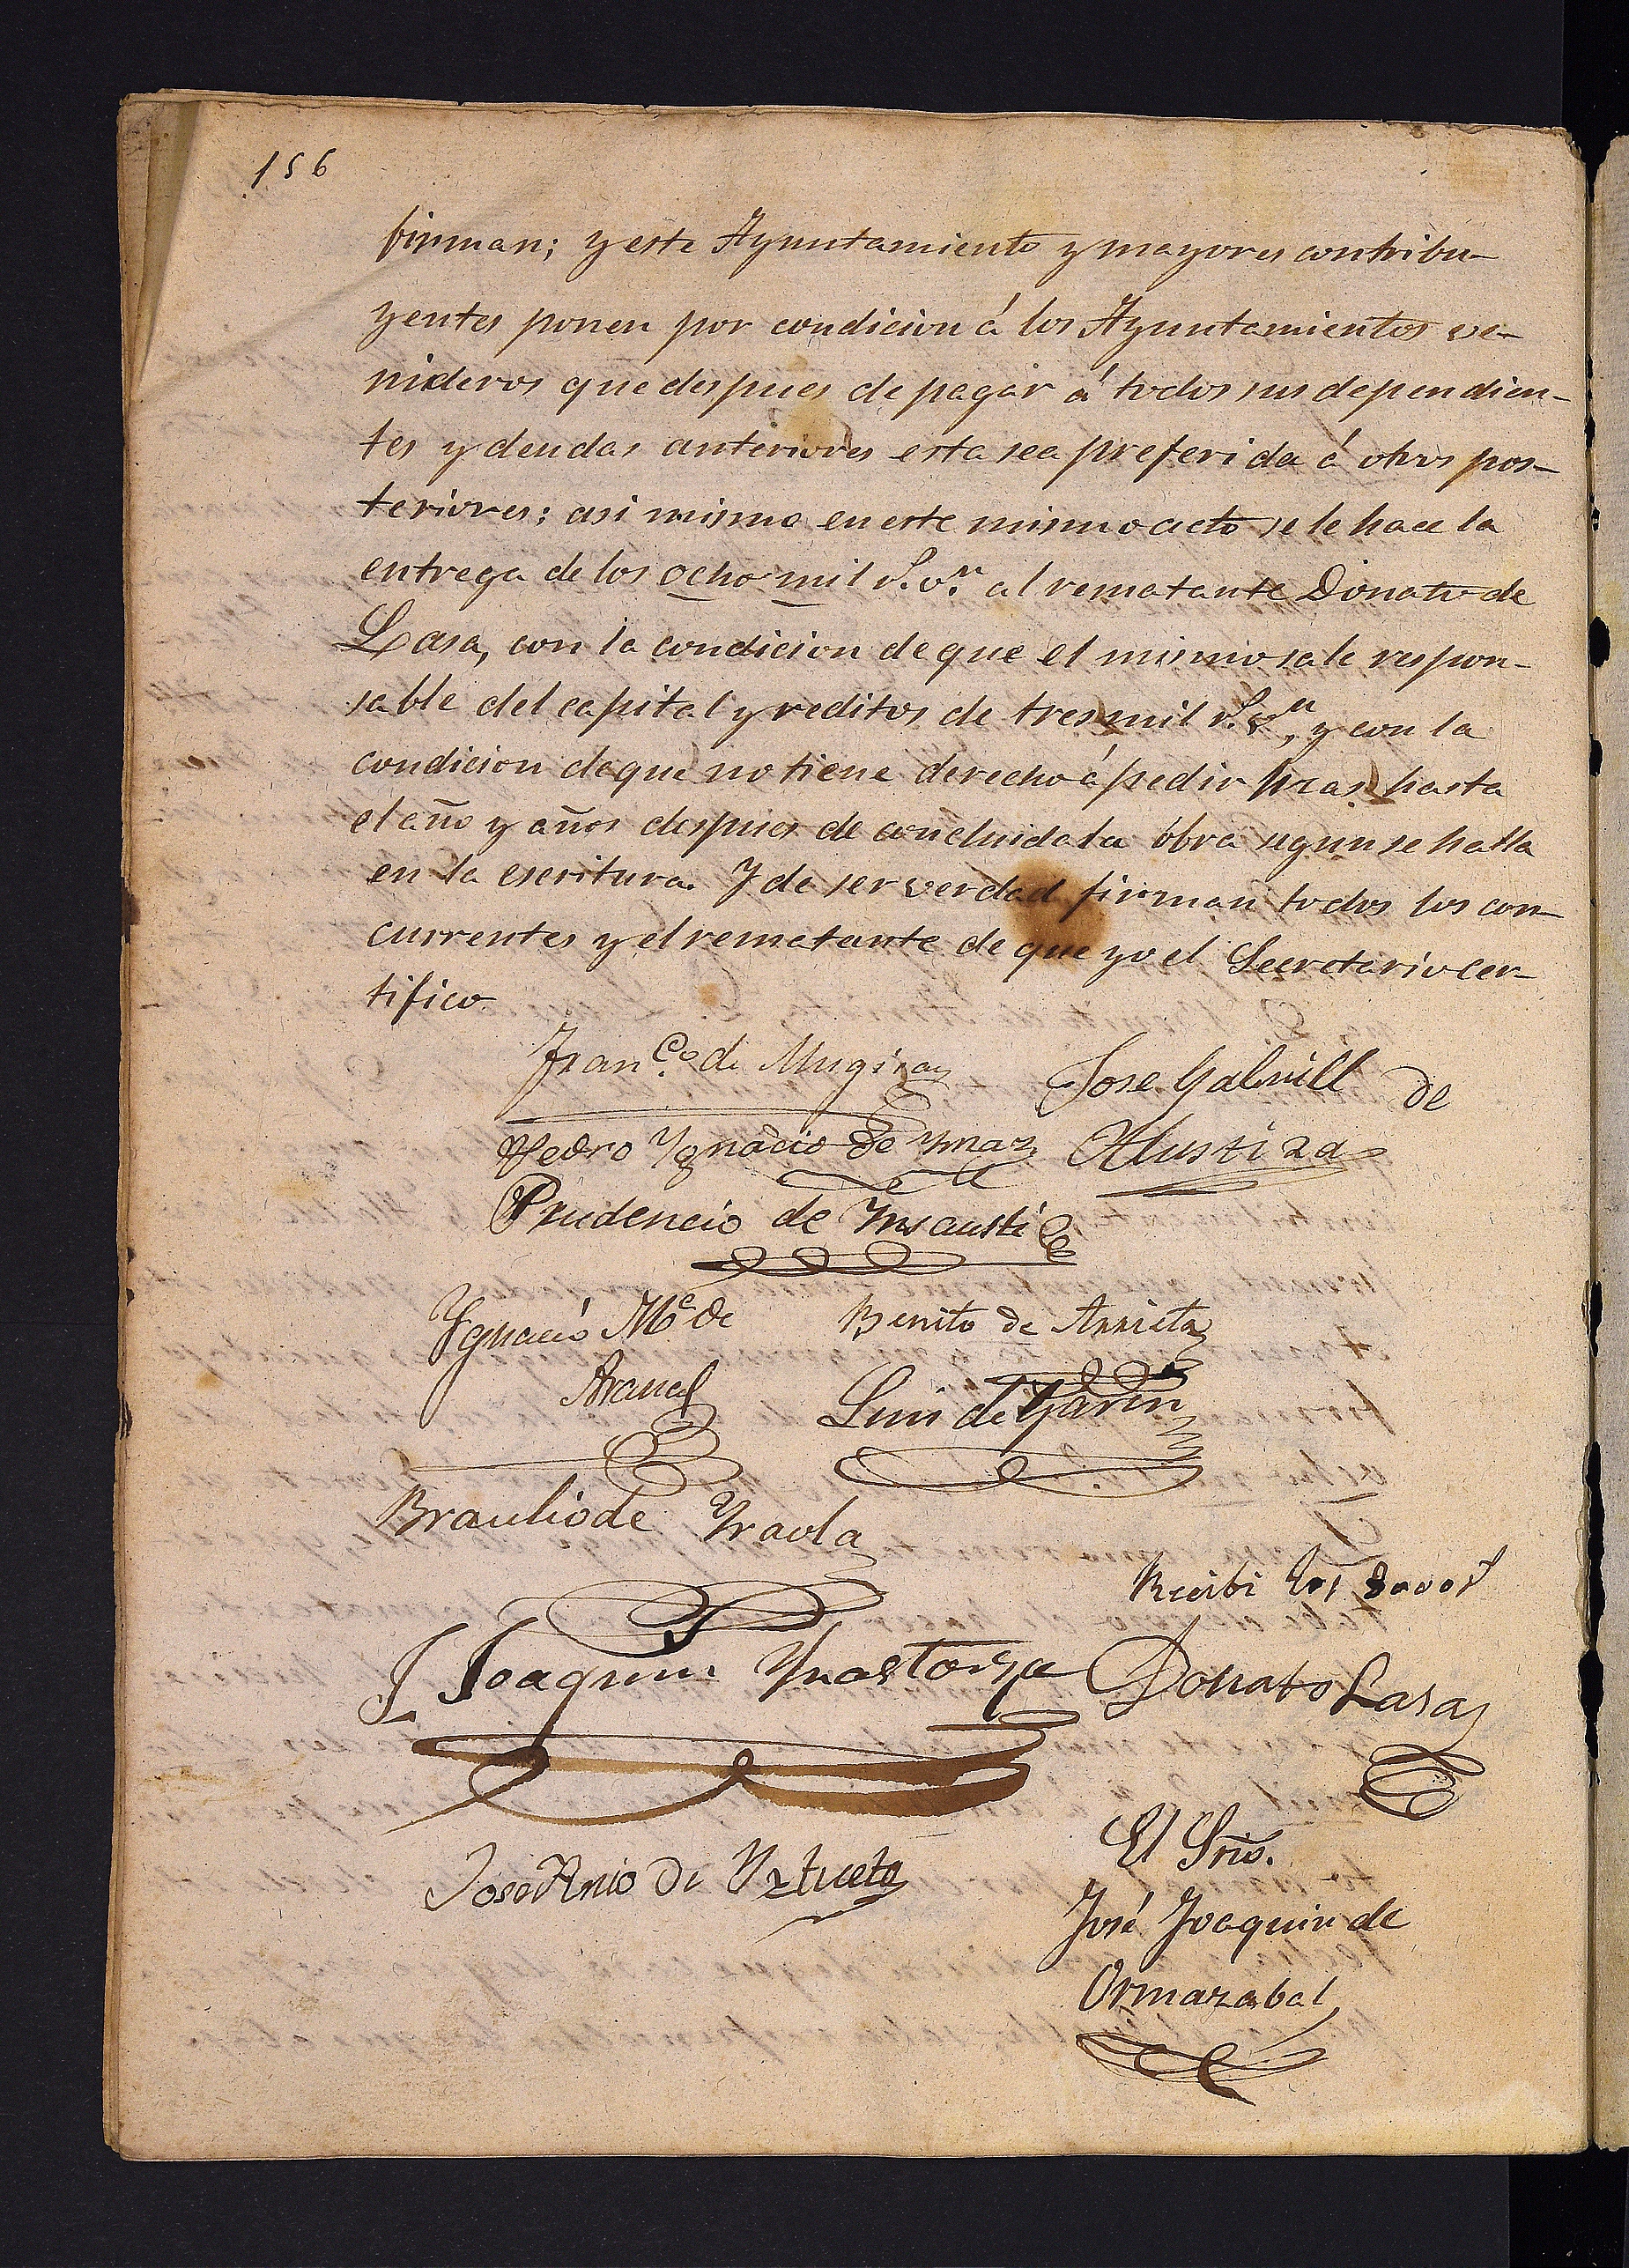 156
firman; y este Ayuntamiento y mayores contribu-
yentes ponen por condicion á los Ayuntamientos ve-
nideros que despues de pagar á todos sus dependien-
tes y deudas anteriores esta sea preferida á otros pos-
teriores: asi mismo en este mismo acto se le hace la
entrega de los ocho mil r.s v.n al rematante Donato de
Lasa, con la condicion de que el mismo sale respon-
sable del capital y reditos de tres mil r.s v.n, y con la
condicion de que no tiene derecho á pedir mas hasta
el año y años despues de concluida la obra segun se halla
en la escritura. Y de ser verdad firman todos los con-
currentes y el rematante de que yo el Secretario cer-
tifico
Fran.co de Mugica
Jose Gabriell de
Alustiza
Pedro Ygnacio de Ymaz
Prudencio de Ynsausti
Ygnacio M.a de
Arana
Benito de Arrieta
Luis de Garin
Braulio de Yraola
Recibi los 8000 r
J. Joaquin
Donato Lasa
Jose Anto de Yztueta
El Srio.
José Joaquin de
Ormazabal